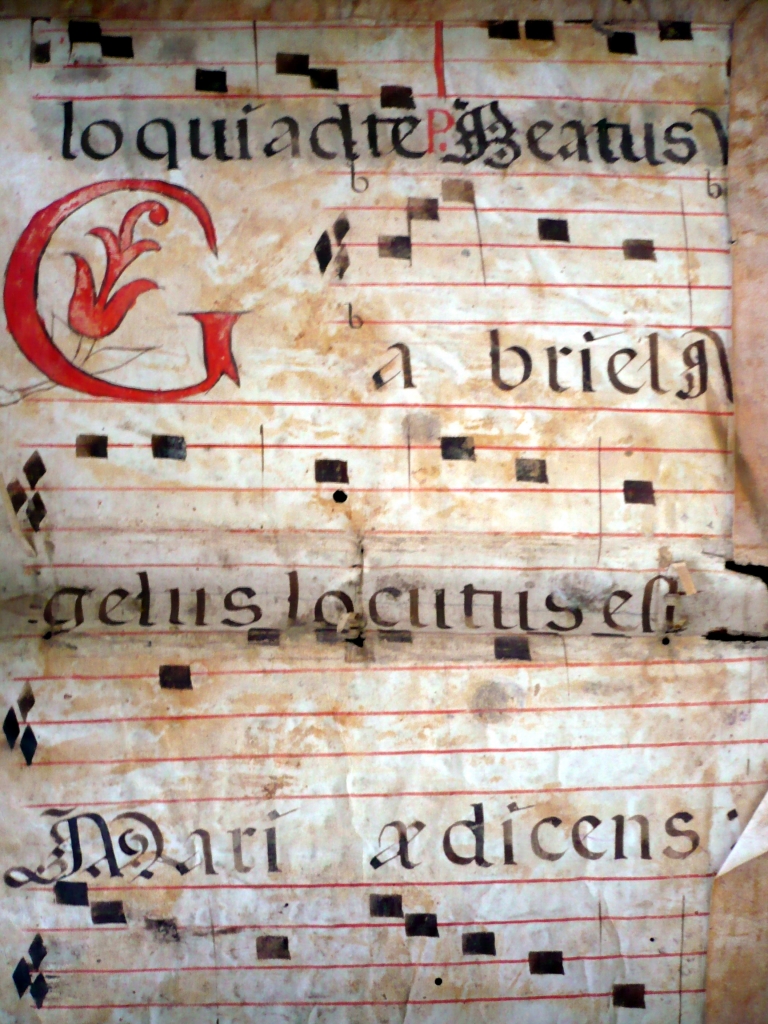 loqui ad te P. Beatus
Gabriel An
gelus locutus est
Mariæ dicens: